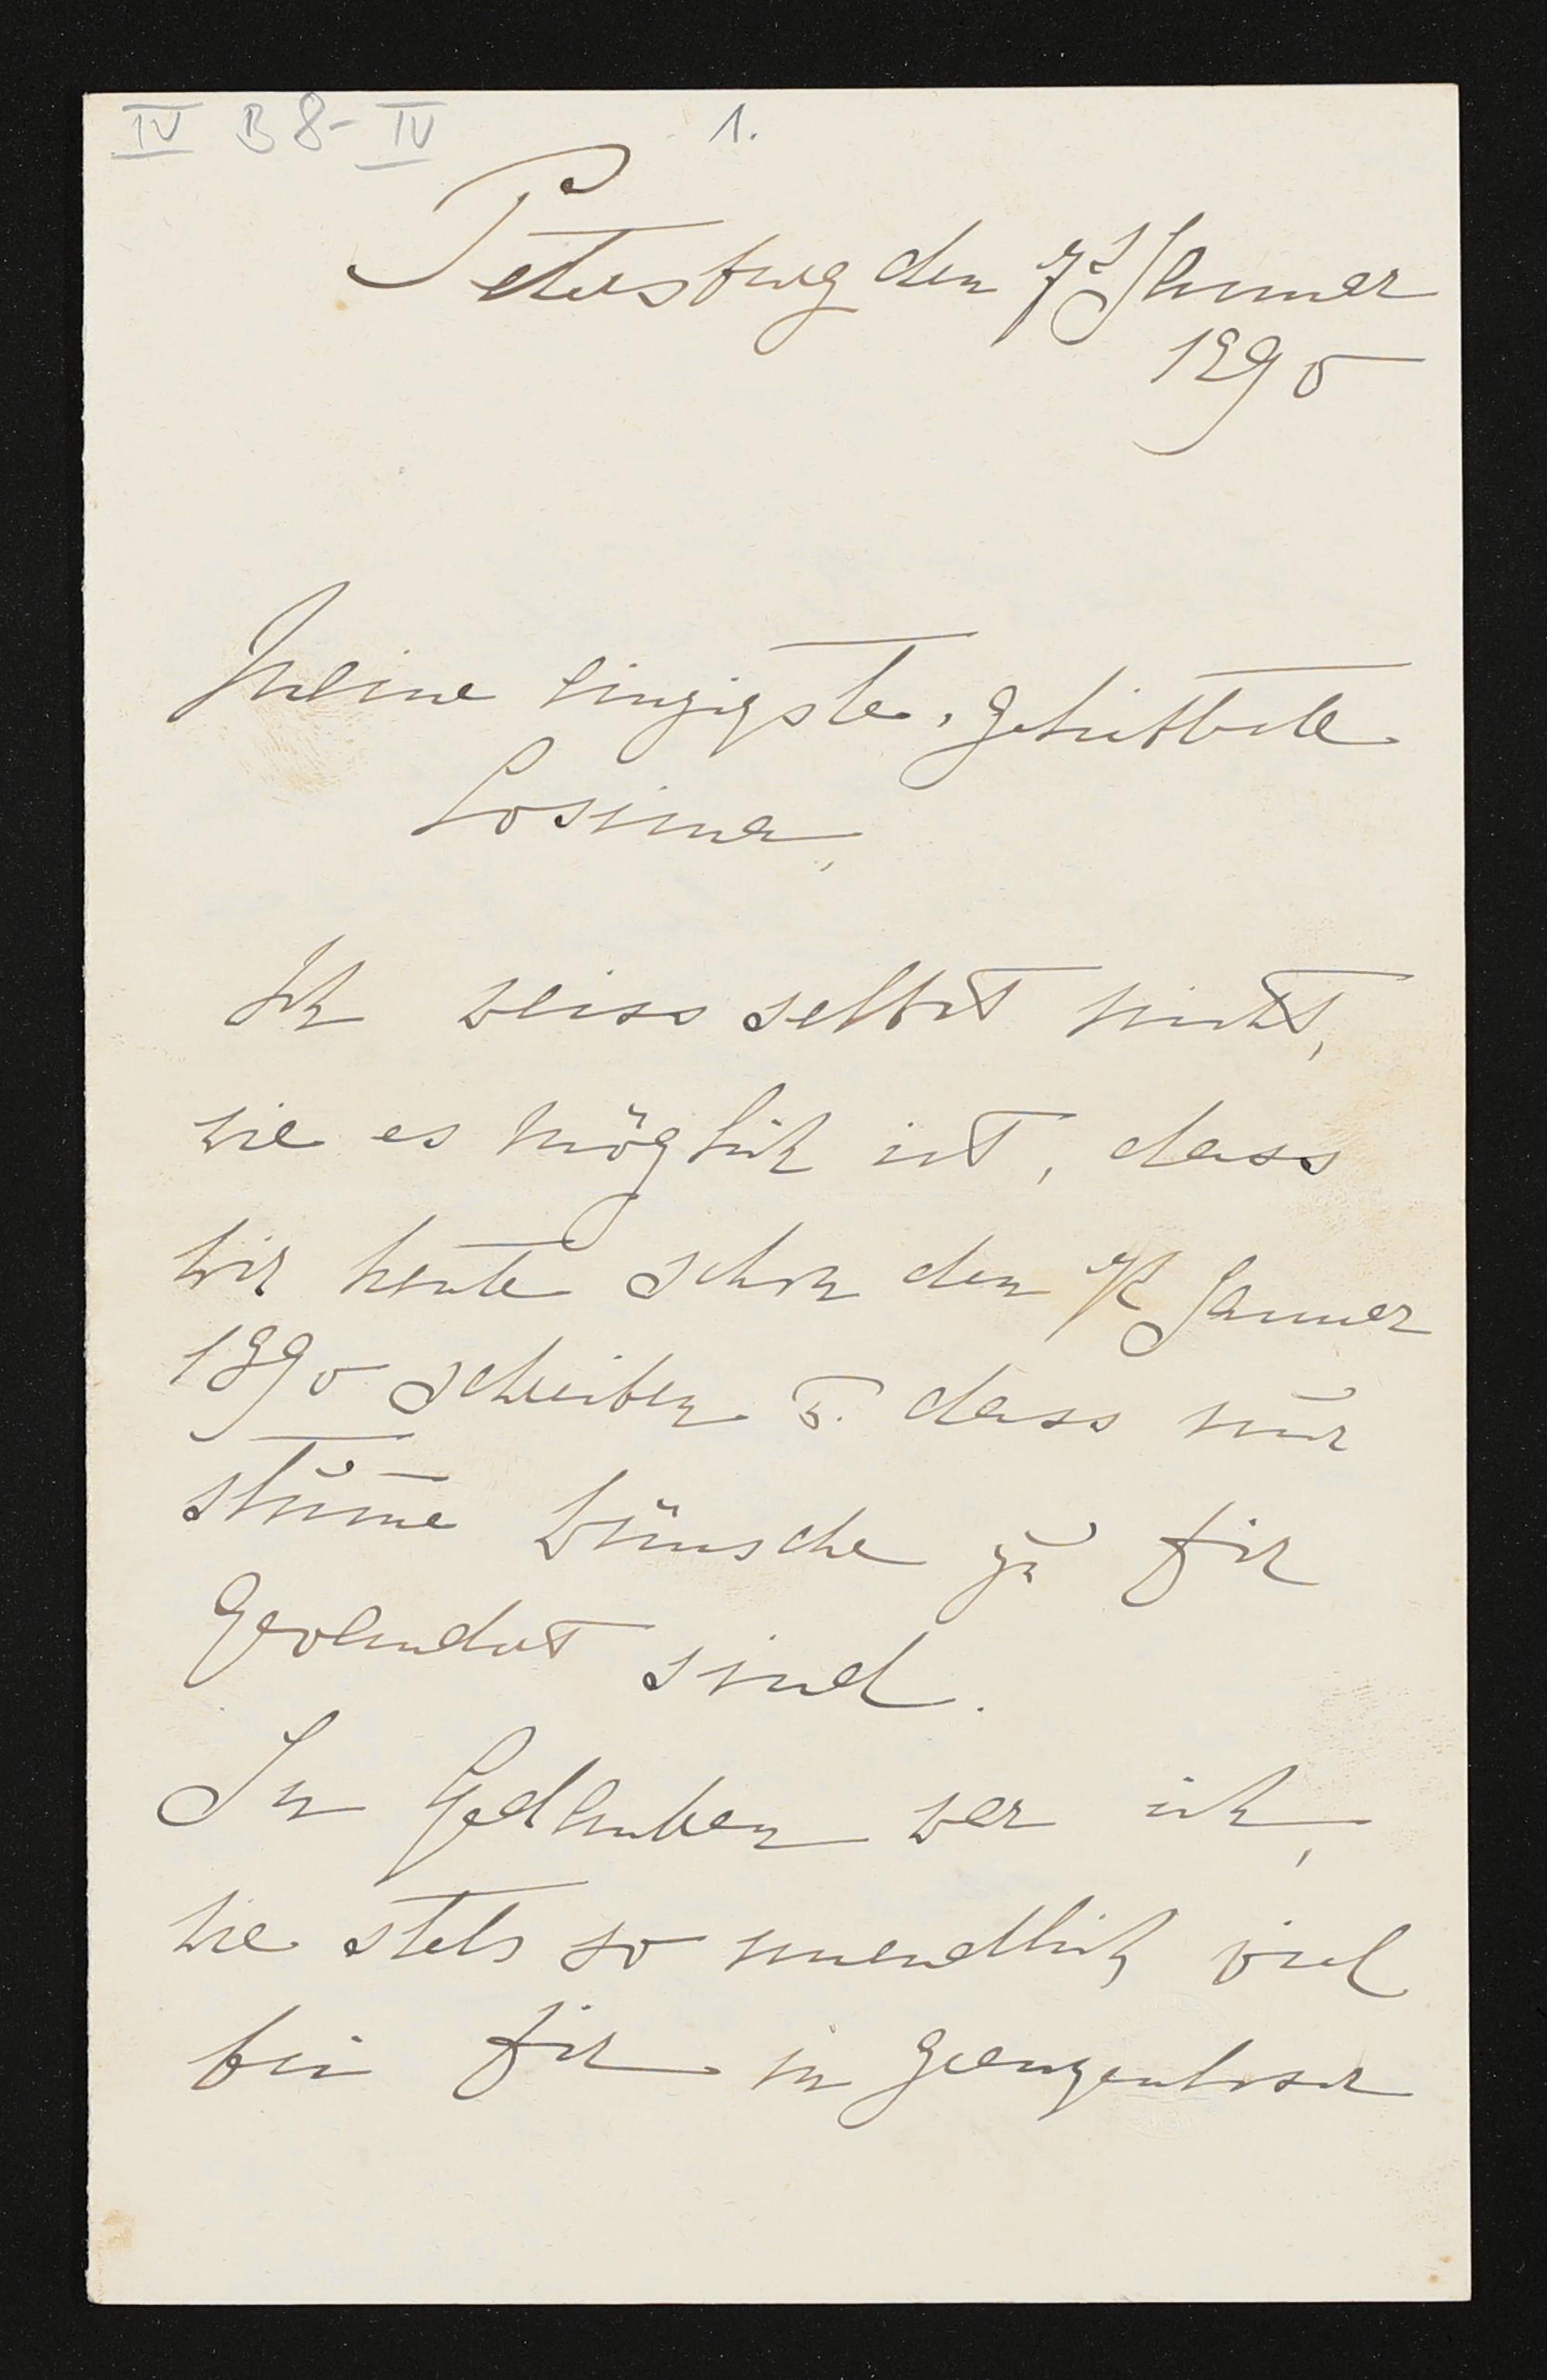 IV B 8-IV
1.
Petersburg den 7. Januar
1890
Meine einzigste, geliebteste
Cosima,
Ich weiss selbst nicht,
wie es möglich ist, dass
wir heute schon den Januar
1890 schreiben u. dass nur
stum̄e Wünsche zu Dir
gewandert sind.
In Gedanken war ich,
wie stets so unendlich viel
bei Dir in grenzenloser